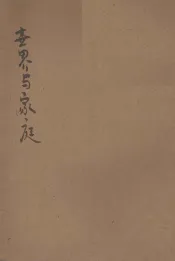 世界与家庭